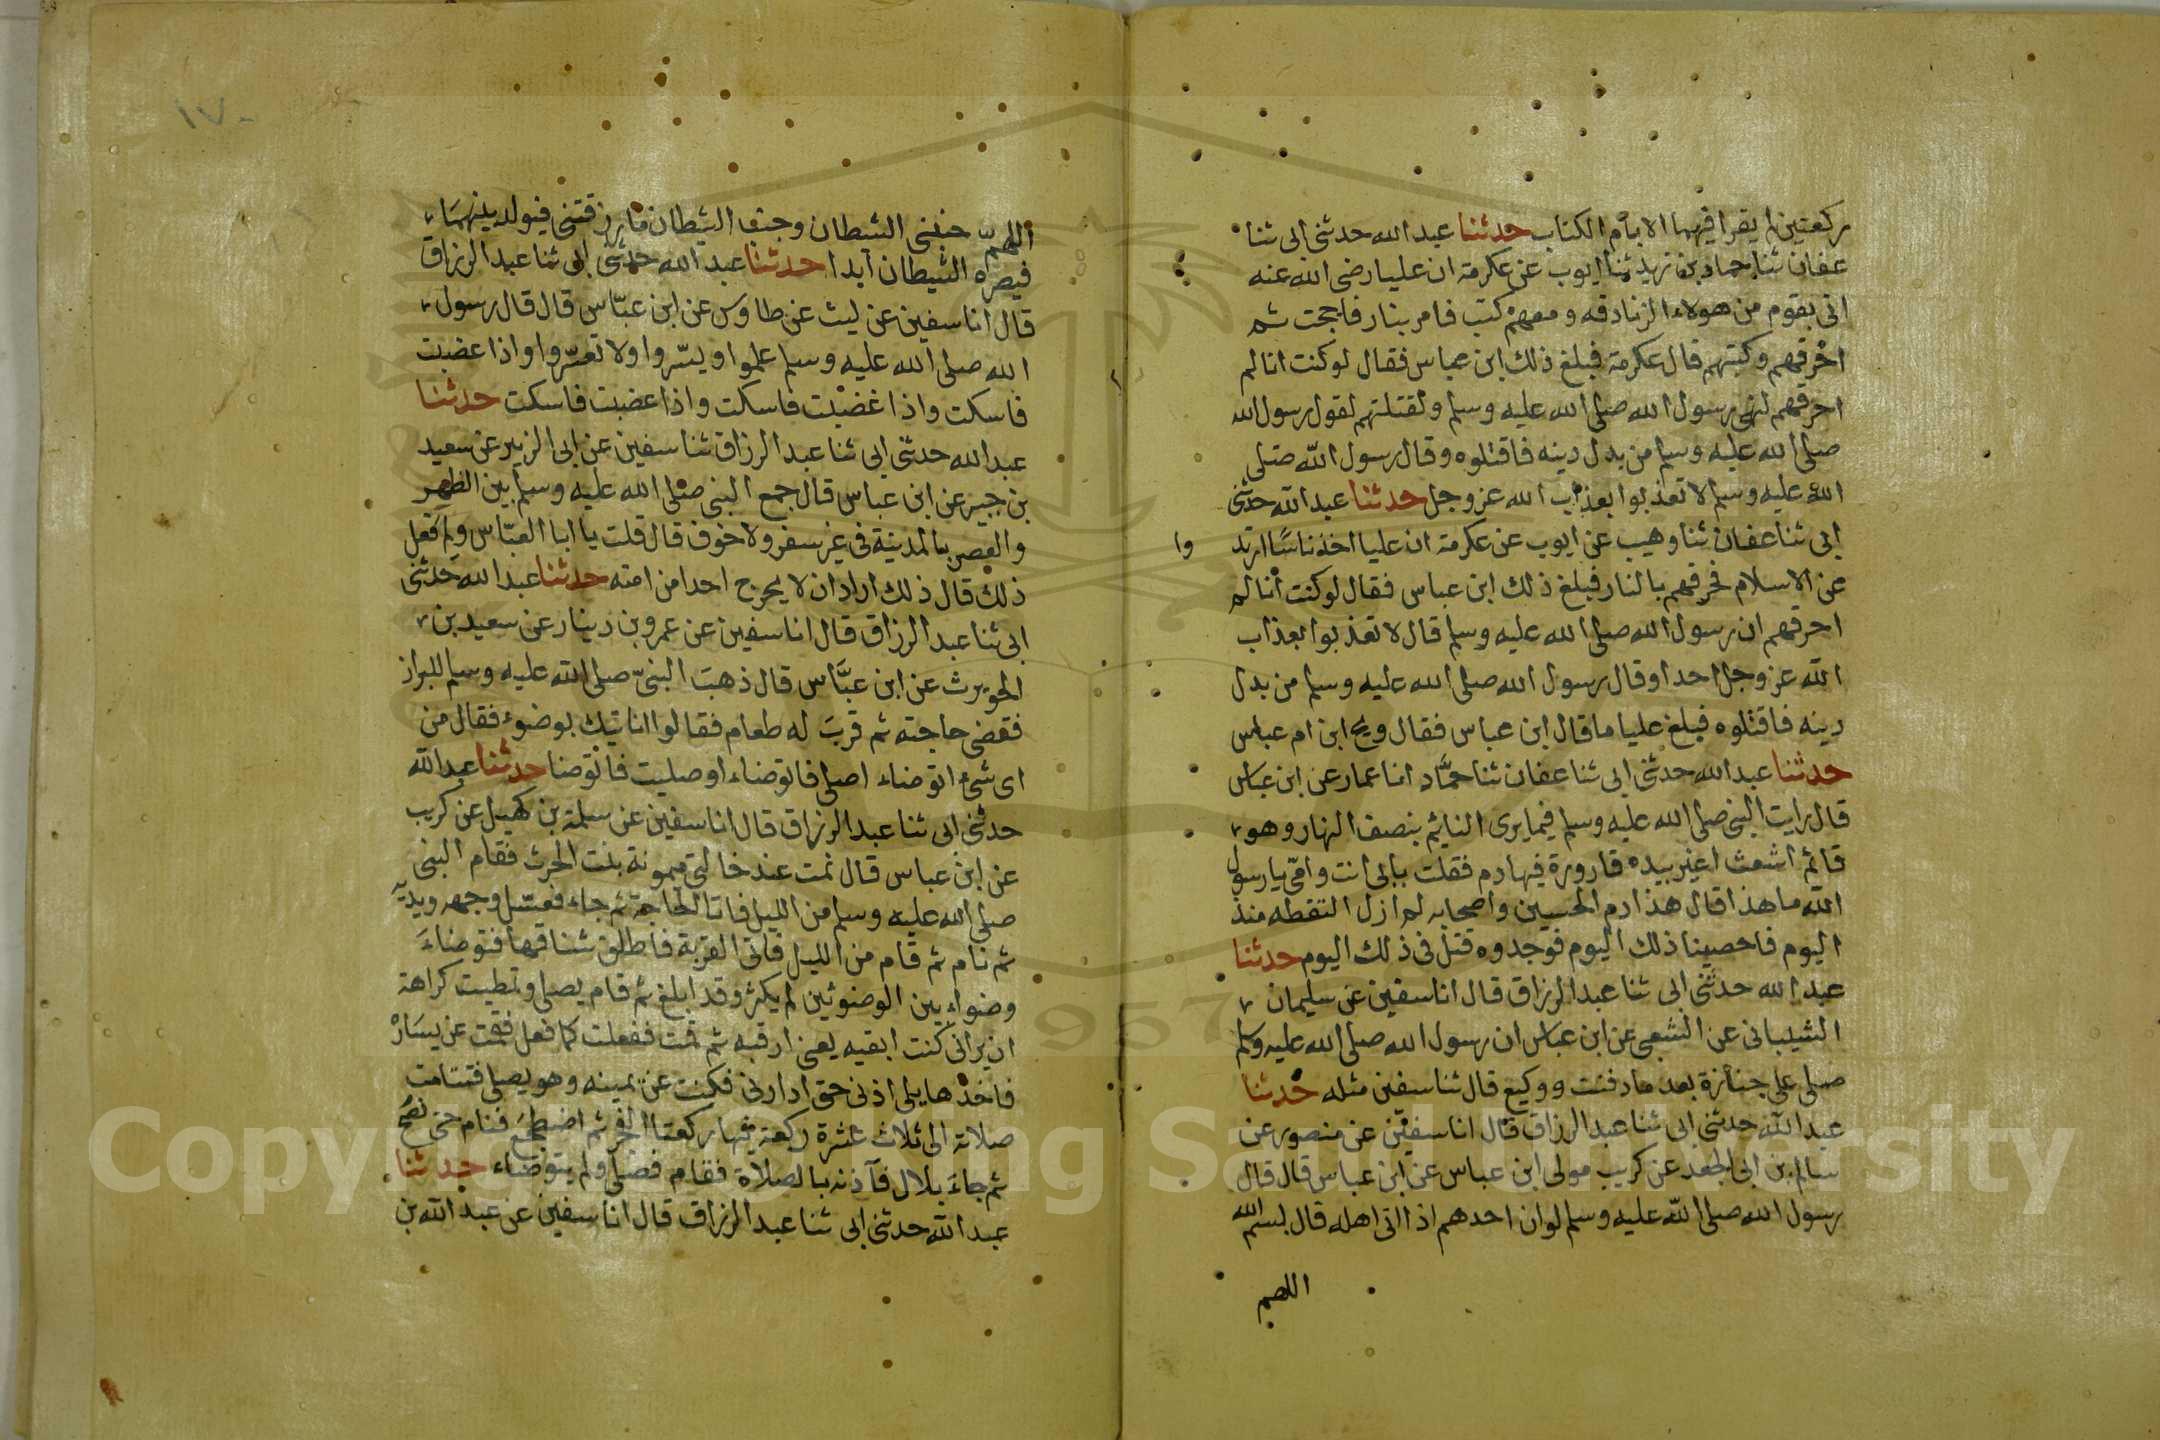 ركعتين لم يقرا فيهما الا بأم الكتاب حدثنا عبد الله حدثني ابي ثنا
عفان ثنا حماد بن زيد ثنا ايوب عن عكرمة ان عليا رضي الله عنه
اتى بقوم من هولاء الزنادقه ومعهم كتب فامر بنار فاججت ثم
احرقهم وكتبهم قال عكرمة فبلغ ذلك ابن عباس فقال لو كنت انا لم
احرقهم لنهى رسول الله صلى الله عليه وسلم ولقتلتهم لقول رسول الله
صلى الله عليه وسلم من بدل دينه فاقتلوه وقال رسول الله صلى
الله عليه وسلم لا تعذبوا بعذاب الله عز وجل حدثنا عبد الله حدثني
ابي ثنا عفان ثنا وهيب عن ايوب عن عكرمة ان عليا اخذ ناسًا ارتد وا
عن الاسلام فحرقهم بالنار فبلغ ذلك ابن عباس فقال لو كنت أنا لم
احرقهم ان رسول الله صلى الله عليه وسلم قال لا تعذبوا بعذاب
الله عز وجل احدا وقال رسول الله صلى الله عليه وسلم من بدل
دينه فاقتلوه فبلغ عليا ما قال ابن عباس فقال ويح ابن ام عباس
حدثنا عبد الله حدثني ابي ثنا عفان ثنا حمَّاد انا عمار عن ابن عباس
قال رايت النبي صلى الله عليه وسلم فيما يرى النايم بنصف النهار وهو
قائم اشعث اغبر بيده قارورة فيها دم فقلت بابي انت وامّي يا رسول
الله ما هذا قال هذا دم الحسين واصحابه لم ازل التقطه منذ
اليوم فاحصينا ذلك اليوم فوجدوه قتل في ذلك اليوم حدثنا
عبد الله حدثني ابي ثنا عبد الرزاق قال انا سفين عن سليمان
الشيباني عن الشعبي عن ابن عباس ان رسول الله صلى الله عليه وسلم
صلى على جنازة بعد ما دفنت ووكيع قال ثنا سفين مثله حدثنا
عبد الله حدثني ابي ثنا عبد الرزاق قال انا سفين عن منصور عن
سالم بن ابي الجعد عن كريب مولى ابن عباس عن ابن عباس قال قال
رسول الله صلى الله عليه وسلم لو ان احدهم اذا اتى اهله قال بسم الله
اللهم
١٧٠
اللهمّ جنبني الشيطان وجنب الشيطان ما رزقتني فيولد بينهما
فيضره الشيطان أبدا حدثنا عبد الله حدثني ابي ثنا عبد الرزاق
قال أنا سفين عن ليث عن طاوس عن ابن عبّاس قال قال رسول
الله صلى الله عليه وسلم علموا ويسّروا ولا تعسّروا واذا غضبت
فاسكت واذا غضبت فاسكت واذا غضبت فاسكت حدثنا
عبد الله حدثني ابي ثنا عبد الرزاق ثنا سفين عن ابي الزبير عن سعيد
بن جبير عن ابن عباس قال جمع النبي صلى الله عليه وسلم بين الظهر
والعصر بالمدينة في غير سفر ولا خوف قال قلت يا ابا العبّاس ولم فعل
ذلك قال ذلك اراد ان لا يحرج احدا من امته حدثنا عبد الله حدثني
ابي ثنا عبد الرزاق قال انا سفين عن عمرو بن دينار عن سعيد بن
الحويرث عن ابن عبَّاس قال ذهبَ النبيّ صلى الله عليه وسلم للبراز
فقضى حاجته ثم قربَ له طعام فقالوا اناتيك بوضوء فقال من
اي شئ اتوضاء اصلي فاتوضاء او صليت فاتوضا حدثنا عبد الله
حدثني ابي ثنا عبد الرزاق قال انا سفين عن سلمة بن كهيل عن كريب
عن ابن عباس قال نمت عند خالتي ميمونة بنت الحرث فقام النبي
صلى الله عليه وسلم من الليل فاتا الحاجة ثم جاء فغسل وجهه ويديه
ثم نام ثم قام من الليل فاتى القربة فاطلق شناقها فتوضاءَ
وضواء بين الوضوئين لم يكثر وقد ابلغ ثم قام يصلي وتمطيت كراهة
ان يراني كنت ابقيه يعني ارقبه ثم قمت ففعلت كما فعل فقمت عن يساره
فاخذ هايلي اذني حتى ادارني فكنت عن يمينه وهو يصلي فتتامت
صلاته الى ثلاث عشرة ركعة فيها ركعتا الفجر ثم اضطجع فنام حتى نفخ
ثم جاءَ بلال فآذنه بالصلاة فقام فصلى ولم يتوضاء حدثنا
عبد الله حدثني ابي ثنا عبد الرزاق قال انا سفين عن عبد الله بن
Copyright © King Saud University
1957